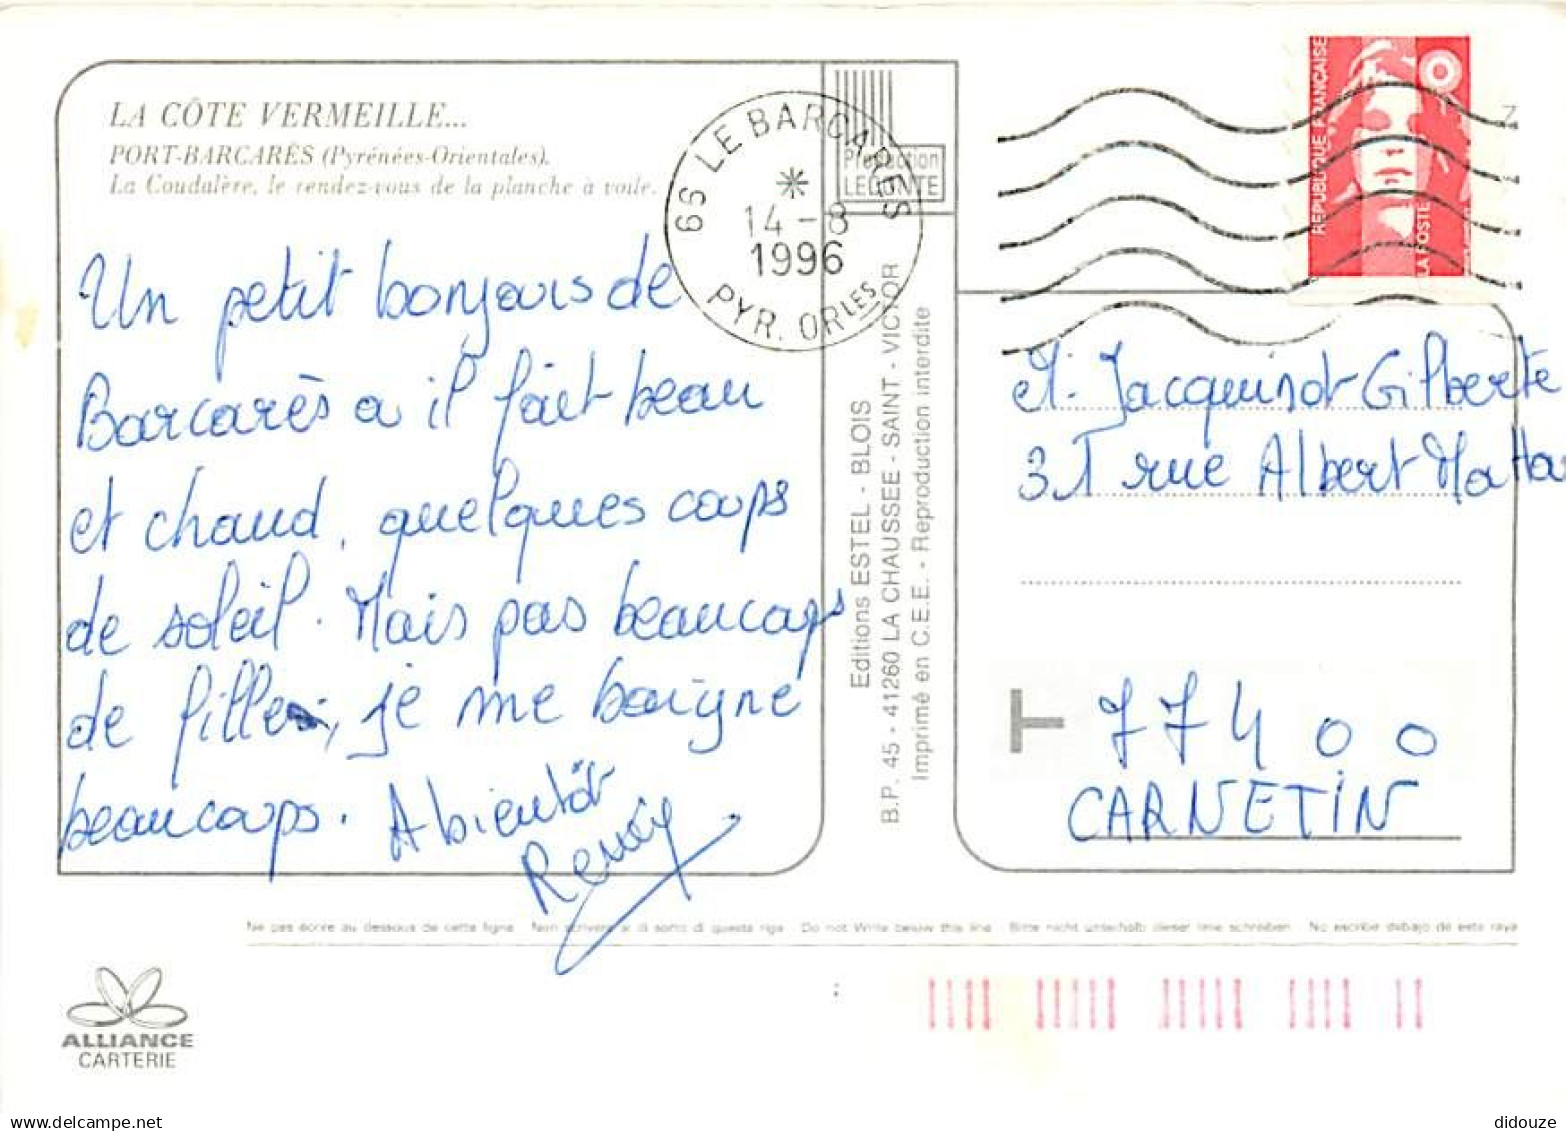 LA CÔTE VERMEILLE...
PORT-BARCARÈS (Pyrénées-Orientales).
La Coudalère, le rendez-vous de la planche à voile.
Un petit bonjours de
Barcarès a il fait beau
et chaud, quelques coups
de soleil. Mais pas beaucoups
de fille, je me baigne
beaucoups. A bientôt
Remy
66 LE BARCARES
14-8
1996
PYR. ORLES
Protection
LECONTE
REPUBLIQUE FRANÇAISE
LA POSTE
Editions ESTEL - BLOIS
B.P. 45 - 41260 LA CHAUSSEE - SAINT - VICTOR
Imprimé en C.E.E. - Reproduction interdite
M. Jacquinot Gilberte
31 rue Albert
T 77400
CARNETIN
Ne pas écrire au dessous de cette ligne Non scrivere al di sotto di questa riga Do not Write below this line Bitte nicht unterhalb dieser linie schreiben No escribir debajo de esta raya
ALLIANCE
CARTERIE
didouze